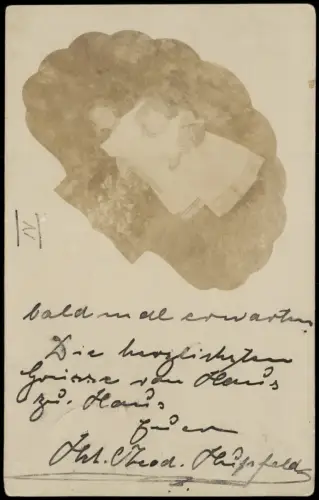 IV
bald mal erwarten.
Die herzlichsten
Grüsse von Haus
zu. Haus
Euer
Theod. Hupfeld